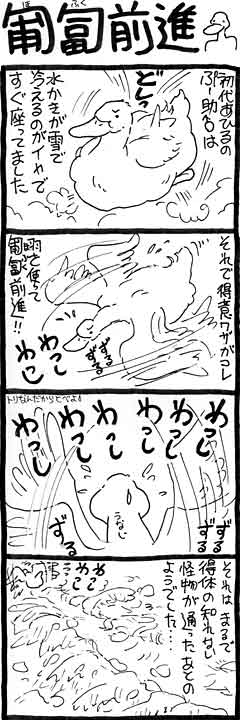 葡冨前進
ほふく
初代あひるの
ぷー助君は
どしっ
水かきが雪で
冷えるのがイヤで
すぐ座ってました
それで得意ワザがコレ
翅を使って
葡冨前進!!
わっし
わっし
ずる
ずる
トリなんだからとべよ!
わっし
わっし
わっし
わっし
わっし
わっし
うなじ
ずる
ずる
ずる
それはまるで
得体の知れない
怪物が通ったあとの
ようでした…
雪
わっし
わっし